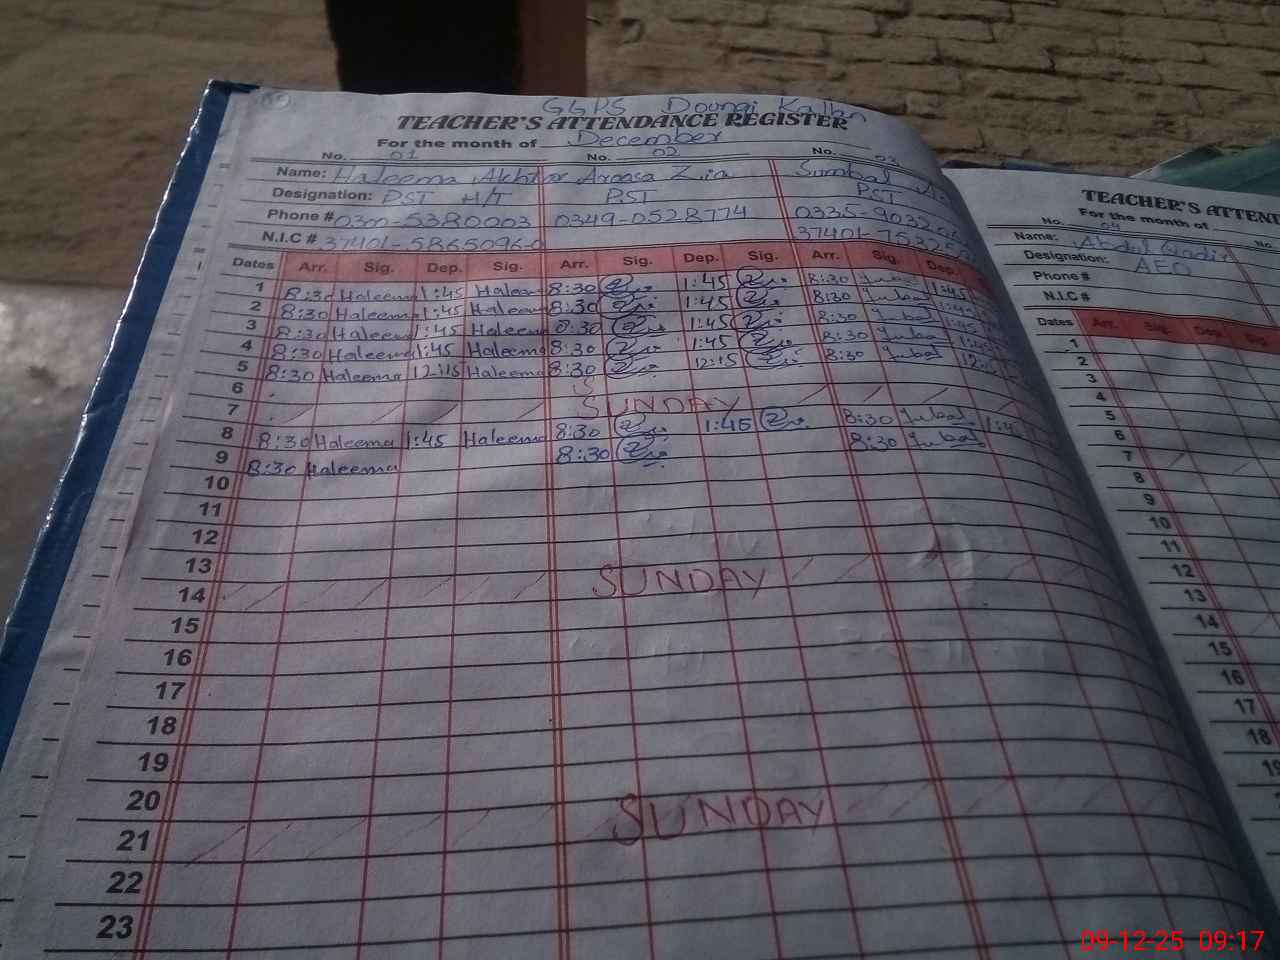 GGPS Doongi Kallan
TEACHER'S ATTENDANCE REGISTER
For the month of December
No. 01 No. 02 No. 03
Name: Haleema Akhtar Aroosa Zia Sumbal
Designation: PST H/T PST PST
Phone # 0300-5380003 0349-0528774 0335-9032
N.I.C # 37401-5865096-0 37401-75325
Dates Arr. Sig. Dep. Sig. Arr. Sig. Dep. Sig. Arr. Sig. Dep.
1 8:30 Haleema 1:45 Haleema 8:30 1:45 8:30 1:45
2 8:30 Haleema 1:45 Haleema 8:30 1:45 8:30 1:45
3 8:30 Haleema 1:45 Haleema 8:30 1:45 8:30 1:45
4 8:30 Haleema 1:45 Haleema 8:30 1:45 8:30
5 8:30 Haleema 12:15 Haleema 8:30 12:15 8:30 12:15
6
7 SUNDAY
8 8:30 Haleema 1:45 Haleema 8:30 1:45 8:30
9 8:30 Haleema 8:30 8:30
10
11
12
13
14 SUNDAY
15
16
17
18
19
20
21 SUNDAY
22
23
TEACHER'S ATTEND
For the month of
No. 04 No.
Name: Abdul Qadir
Designation: AEO
Phone #
N.I.C #
Dates Arr. Sig. Dep. Sig.
1
2
3
4
5
6
7
8
9
10
11
12
13
14
15
16
17
18
09-12-25 09:17